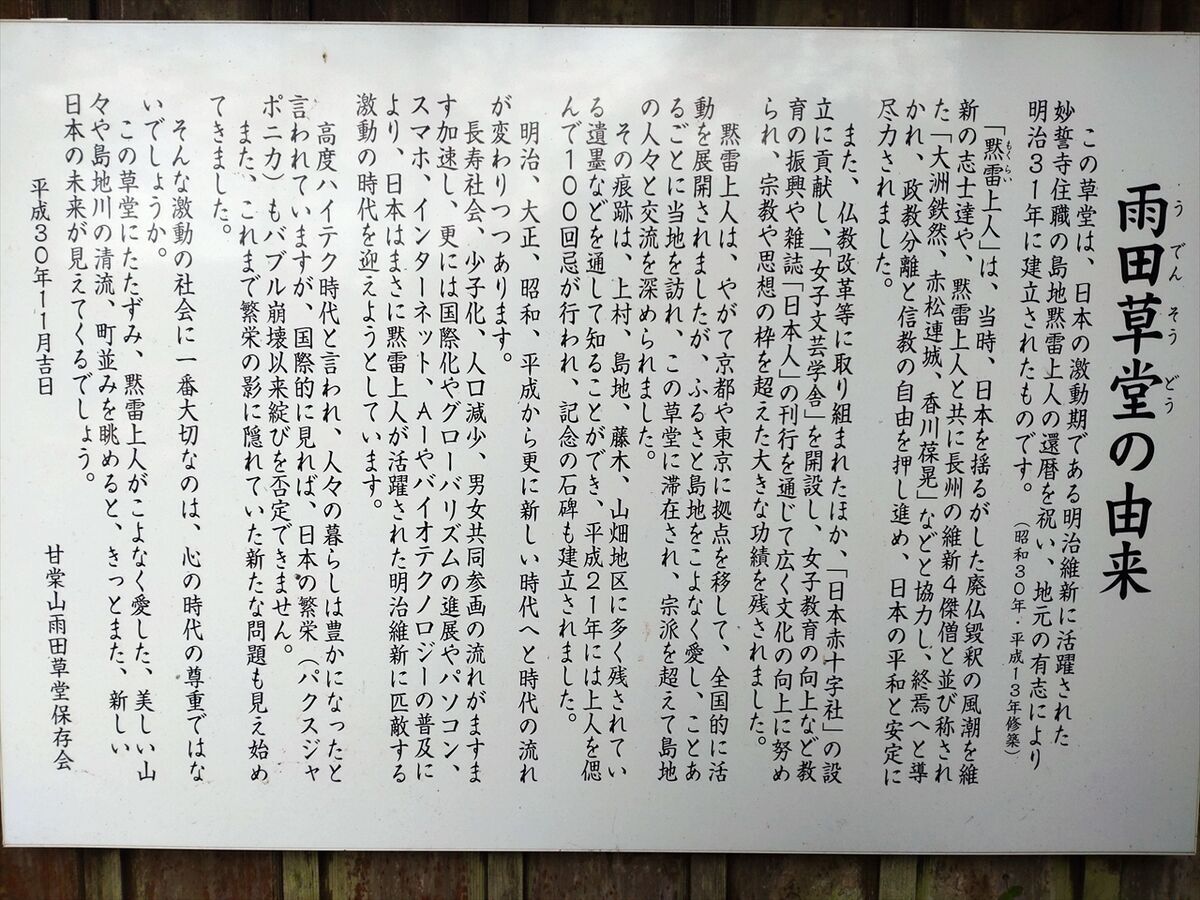 雨田草堂の由来
うでんそうどう
この草堂は、日本の激動期である明治維新に活躍された
妙誓寺住職の島地黙雷上人の還暦を祝い、地元の有志により
明治31年に建立されたものです。(昭和30年・平成13年修築)
「黙雷上人」は、当時、日本を揺るがした廃仏毀釈の風潮を維
もくらい
新の志士達や、黙雷上人と共に長州の維新4傑僧と並び称され
た「大洲鉄然、赤松連城、香川葆晃」などと協力し、終焉へと導
かれ、政教分離と信教の自由を押し進め、日本の平和と安定に
尽力されました。
また、仏教改革等に取り組まれたほか、「日本赤十字社」の設
立に貢献し、「女子文芸学舎」を開設し、女子教育の向上など教
育の振興や雑誌「日本人」の刊行を通じて広く文化の向上に努め
られ、宗教や思想の枠を超えた大きな功績を残されました。
黙雷上人は、やがて京都や東京に拠点を移して、全国的に活
動を展開されましたが、ふるさと島地をこよなく愛し、ことあ
るごとに当地を訪れ、この草堂に滞在され、宗派を超えて島地
の人々と交流を深められました。
その痕跡は、上村、島地、藤木、山畑地区に多く残されてい
る遺墨などを通して知ることができ、平成21年には上人を偲
んで100回忌が行われ、記念の石碑も建立されました。
明治、大正、昭和、平成から更に新しい時代へと時代の流れ
が変わりつつあります。
長寿社会、少子化、人口減少、男女共同参画の流れがますま
す加速し、更には国際化やグローバリズムの進展やパソコン、
スマホ、インターネット、AIやバイオテクノロジーの普及に
より、日本はまさに黙雷上人が活躍された明治維新に匹敵する
激動の時代を迎えようとしています。
高度ハイテク時代と言われ、人々の暮らしは豊かになったと
言われていますが、国際的に見れば、日本の繁栄(パクスジャ
ポニカ)もバブル崩壊以来綻びを否定できません。
また、これまで繁栄の影に隠れていた新たな問題も見え始め
てきました。
そんな激動の社会に一番大切なのは、心の時代の尊重ではな
いでしょうか。
この草堂にたたずみ、黙雷上人がこよなく愛した、美しい山
々や島地川の清流、町並みを眺めると、きっとまた、新しい
日本の未来が見えてくるでしょう。
平成30年11月吉日
甘棠山雨田草堂保存会